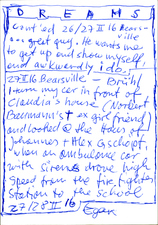 DREAMS
cont'ed 26/27 II 16 Beville
... great guy. He wants me
to get up and show myself
and awkwardly I do.
27 II 16 Bearsville - Brühl
I turn my car in front of
Claudia's house (Norbert
Beermann's + ex girl friend)
and looked @ the of
Johannes + Alex Gschopf,
when an ambulance car
with sirens drove high
speed from the fire fighter
station to the school
27/28 II 16